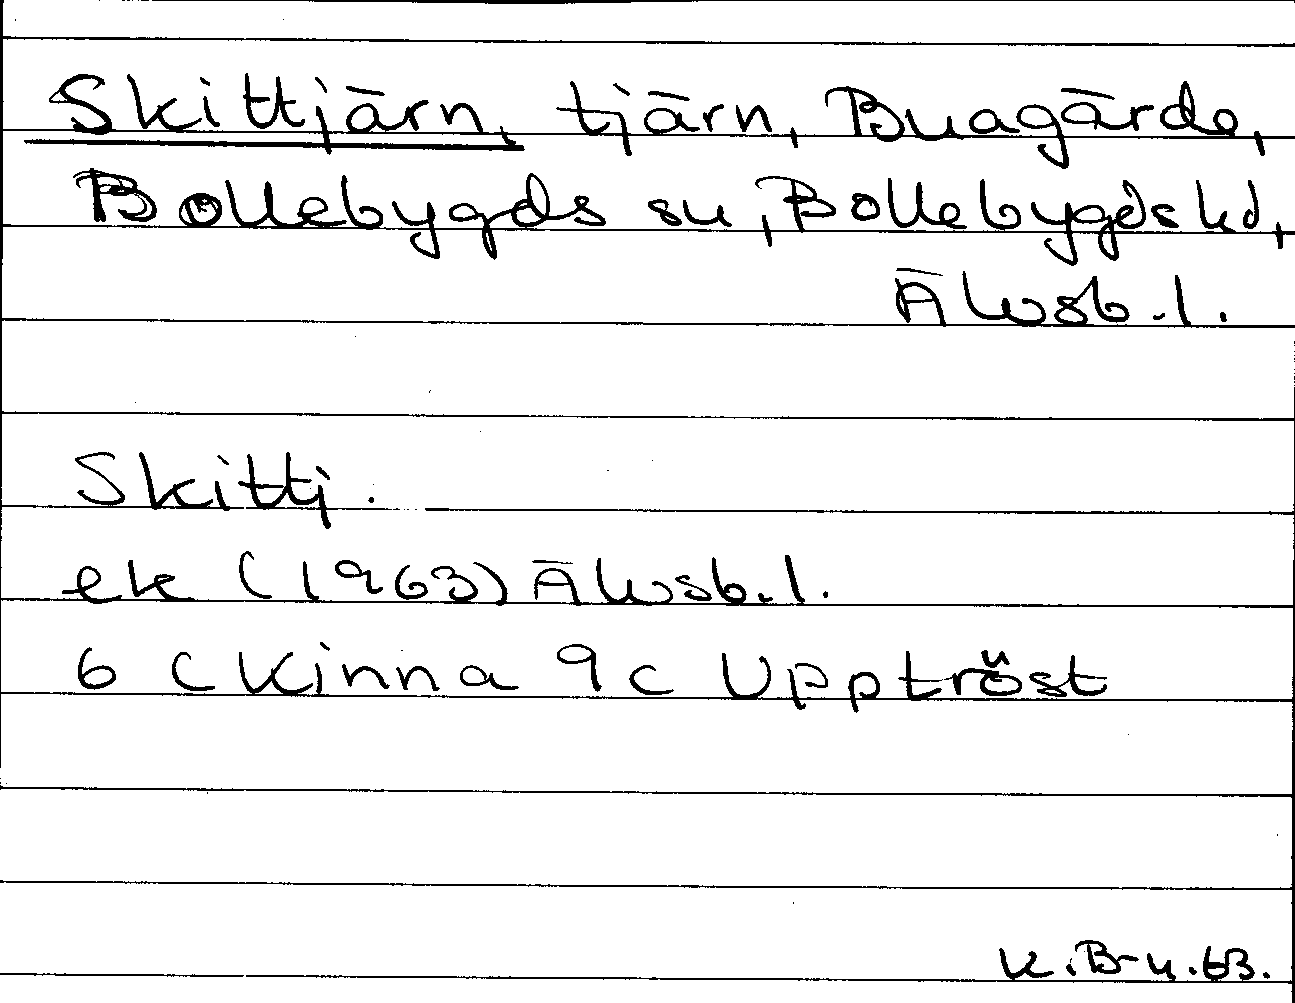 Skittjärn, tjärn, Buagärde,
Bollebygds sn, Bollebygds hd,
Älvsb. l.
Skittj.
ek (1963) Älvsb. l.
6 C Kinna 9c Upptröst
K.B-n.63.